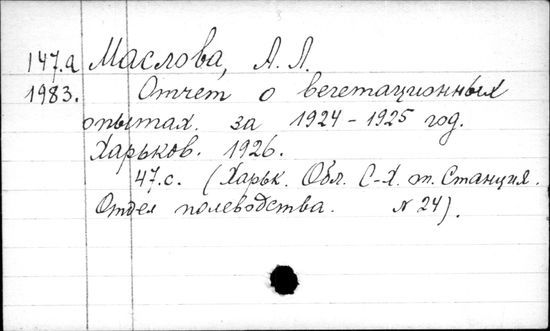 147.а Маслова, А. Л.
1983. Отчет о вегетационных
опытах. за 1924-1925 год.
Харьков. 1926.
47.с. (Харьк. Обл. С-Х. оп. Станция.
Отдел полеводства. N 24).